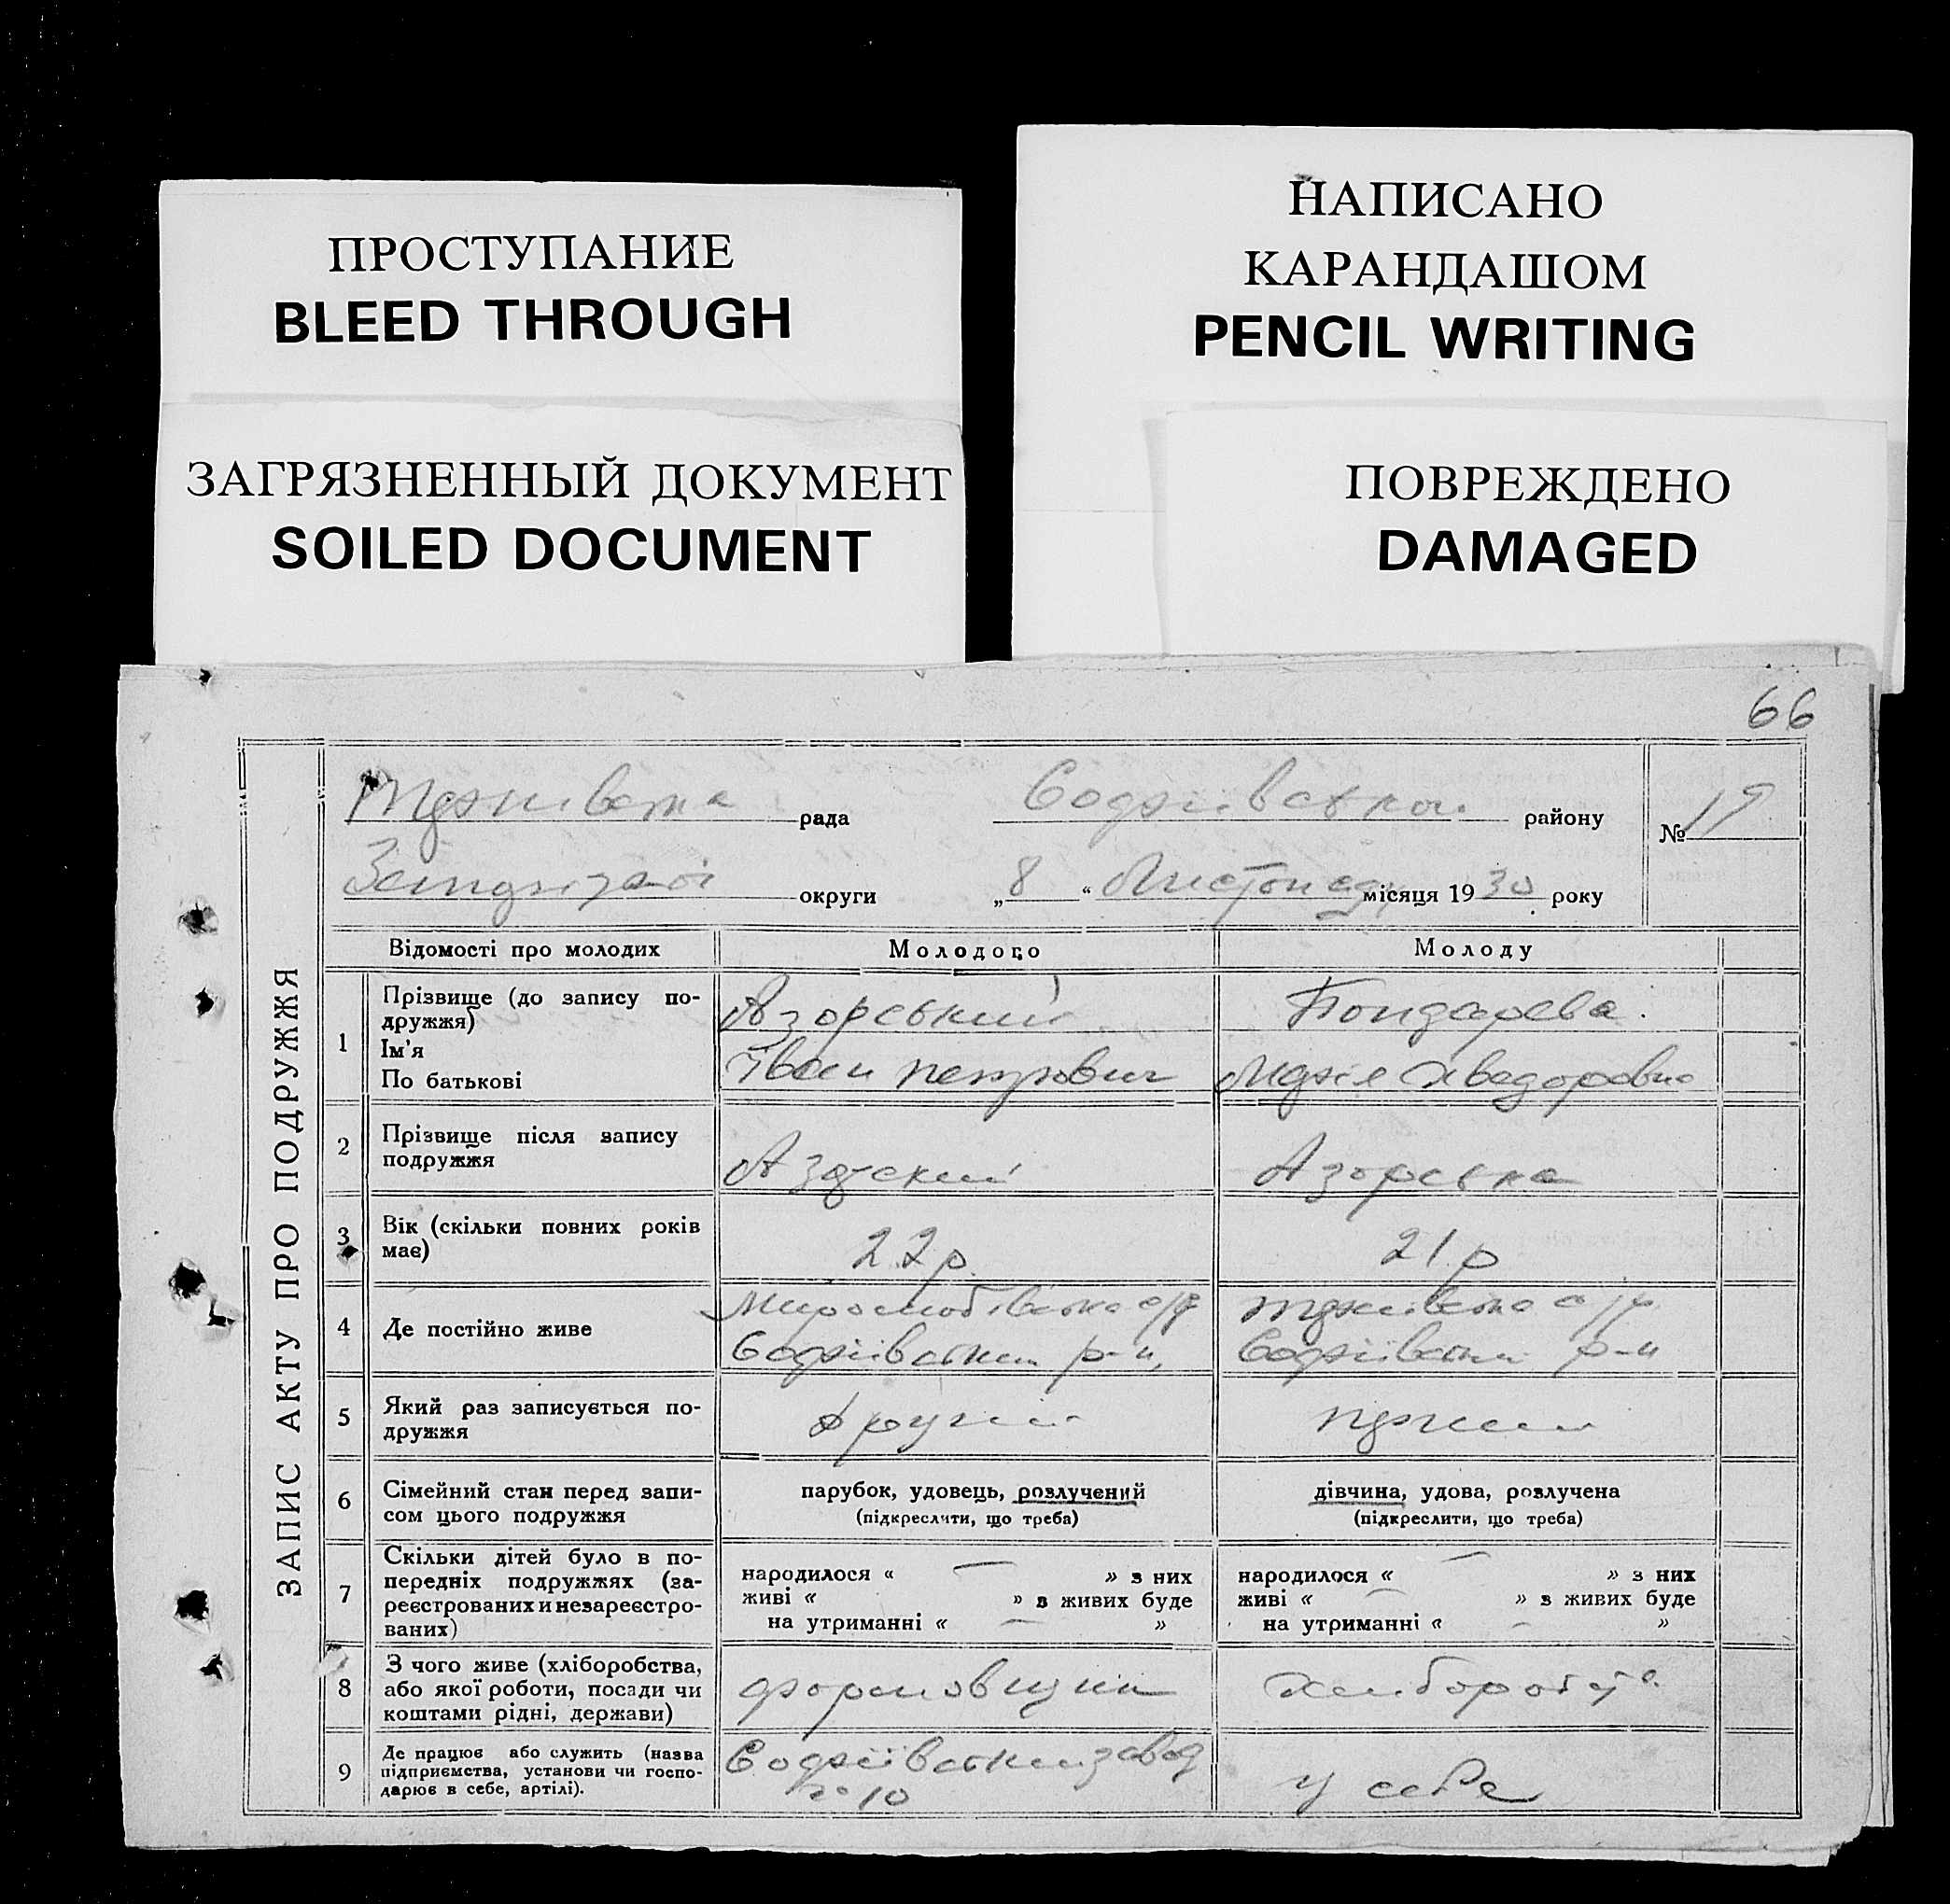 ПРОСТУПАНИЕ
BLEED THROUGH
ЗАГРЯЗНЕННЫЙ ДОКУМЕНТ
SOILED DOCUMENT
НАПИСАНО
КАРАНДАШОМ
PENCIL WRITING
ПОВРЕЖДЕНО
DAMAGED
66
ЗАПИС АКТУ ПРО ПОДРУЖЖЯ
рада Софіївський району № 19
округи „ 8 “ Листопаду місяця 19 30 року
Відомості про молодих Молодого Молоду
1 Прізвище (до запису по-
дружжя) Азорський Бондарева
Ім'я
По батькові Іван петрович Хведоровна
2 Прізвище після запису
подружжя Азорська
3 Вік (скільки повних років
має) 22 р. 21 р
4 Де постійно живе
Софіївський р-н, Софіївський р-н
5 Який раз записується по-
дружжя другий
6 Сімейний стан перед запи-
сом цього подружжя
парубок, удовець, розлучений
(підкреслити, що треба)
дівчина, удова, розлучена
(підкреслити, що треба)
7 Скільки дітей було в по-
передніх подружжях (за-
реєстрованих и незареєстро-
ваних)
народилося « — » з них
живі « » з живих буде
на утриманні « — »
народилося « — » з них
живі « — » з живих буде
на утриманні « — »
8 З чого живе (хліборобства,
або якої роботи, посади чи
коштами рідні, держави)
формовщик
9 Де працює або служить (назва
підприємства, установи чи госпо-
дарює в себе, артілі).
Софіївський завод
№ 10
у себе